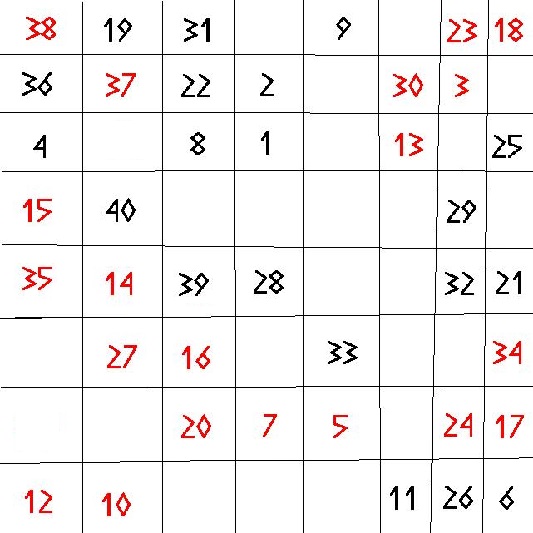 38 19 31 9 23 18
36 37 22 2 30 3
4 8 1 13 25
15 40 29
35 14 39 28 32 21
27 16 33 34
20 7 5 24 17
12 10 11 26 6